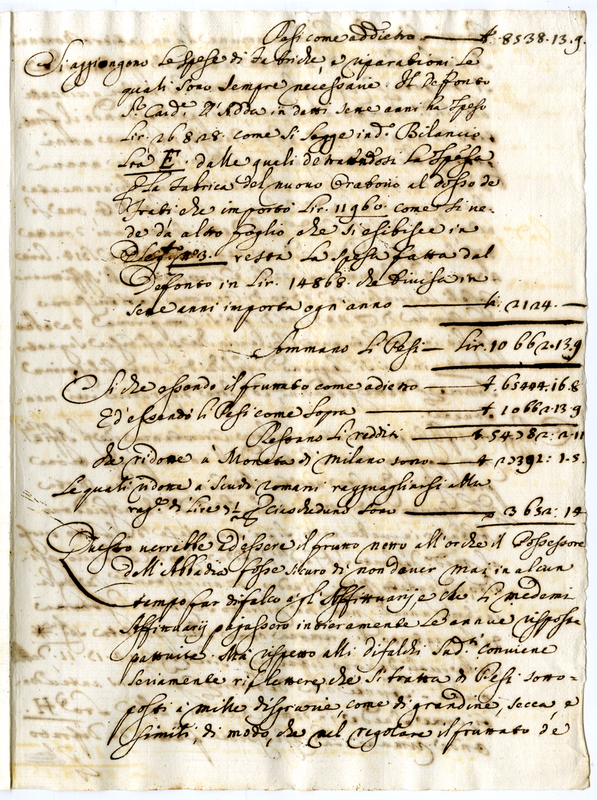 Pesi come addietro — £. 8538.13.9.
Si aggiongono le spese di fabriche, e riparationi le
quali sono sempre necessarie. Il Defonto
Sr. Card. d'Adda in detti sette anni ha speso
Lir. 26828. come si legge in d. Bilancio
Ltra E. dalle quali detrattandosi la spesa
della fabrica del nuovo Oratorio al dosso de
frati che importò Lir. 11960. come si ve-
de da altro foglio, che si esibisce in
n.° 3. resta la spesa fatta dal
Defonto in Lir. 14868. che divisa in
sette anni importa ogni anno — £. 2124. —
Sommano li Pesi — Lir. 10662.13.9
Si che essendo il fruttato come adietro — £. 65404:16.8
Ed essendo li Pesi come sopra — £. 10662.13.9
Restano li redditi — £. 54782: 2.11
che ridotte a Moneta di Milano sono — £. 27391: 1.5.
Le quali ridotte a Scudi romani ragguagliarsi alla
rag.e di Lire 7½ ciascheduno sono — 3652: 14
Questo verrebbe ed'essere il frutto netto all'or che il Possessore
dell'Abbadia fosse sicuro di non dover mai in alcun
tempo far difalco agl'Affittuarij, e che li medemi
Affittuarij pagassero intieramente le annue risposte
pattuite. Mà rispetto alli difalchi sud.ti conviene
seriamente riflettere, che si tratta di Pesi sotto-
posti à mille disgrazie, come di grandine, secca, e
simili, di modo, che nel regolare il fruttato de